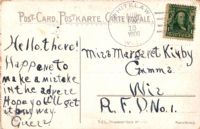 POST-CARD. POSTKARTE CARTE POSTALE.
WHITELAW
WIS.
Hello, there!
Happene to
make a mistake
in the adress
Hope you'll get
it anyway.
Miss Margaret Kirby
Wis
R.F.D. No. 1.